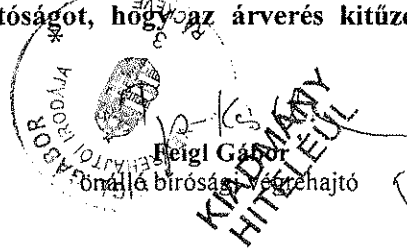 tóságot, hogy az árverés kitűz
GÁBOR
HAJTÓI IRODÁJA
Feigl Gábor
önálló bírósági végrehajtó
KIADMÁNY
HITELÉÜL